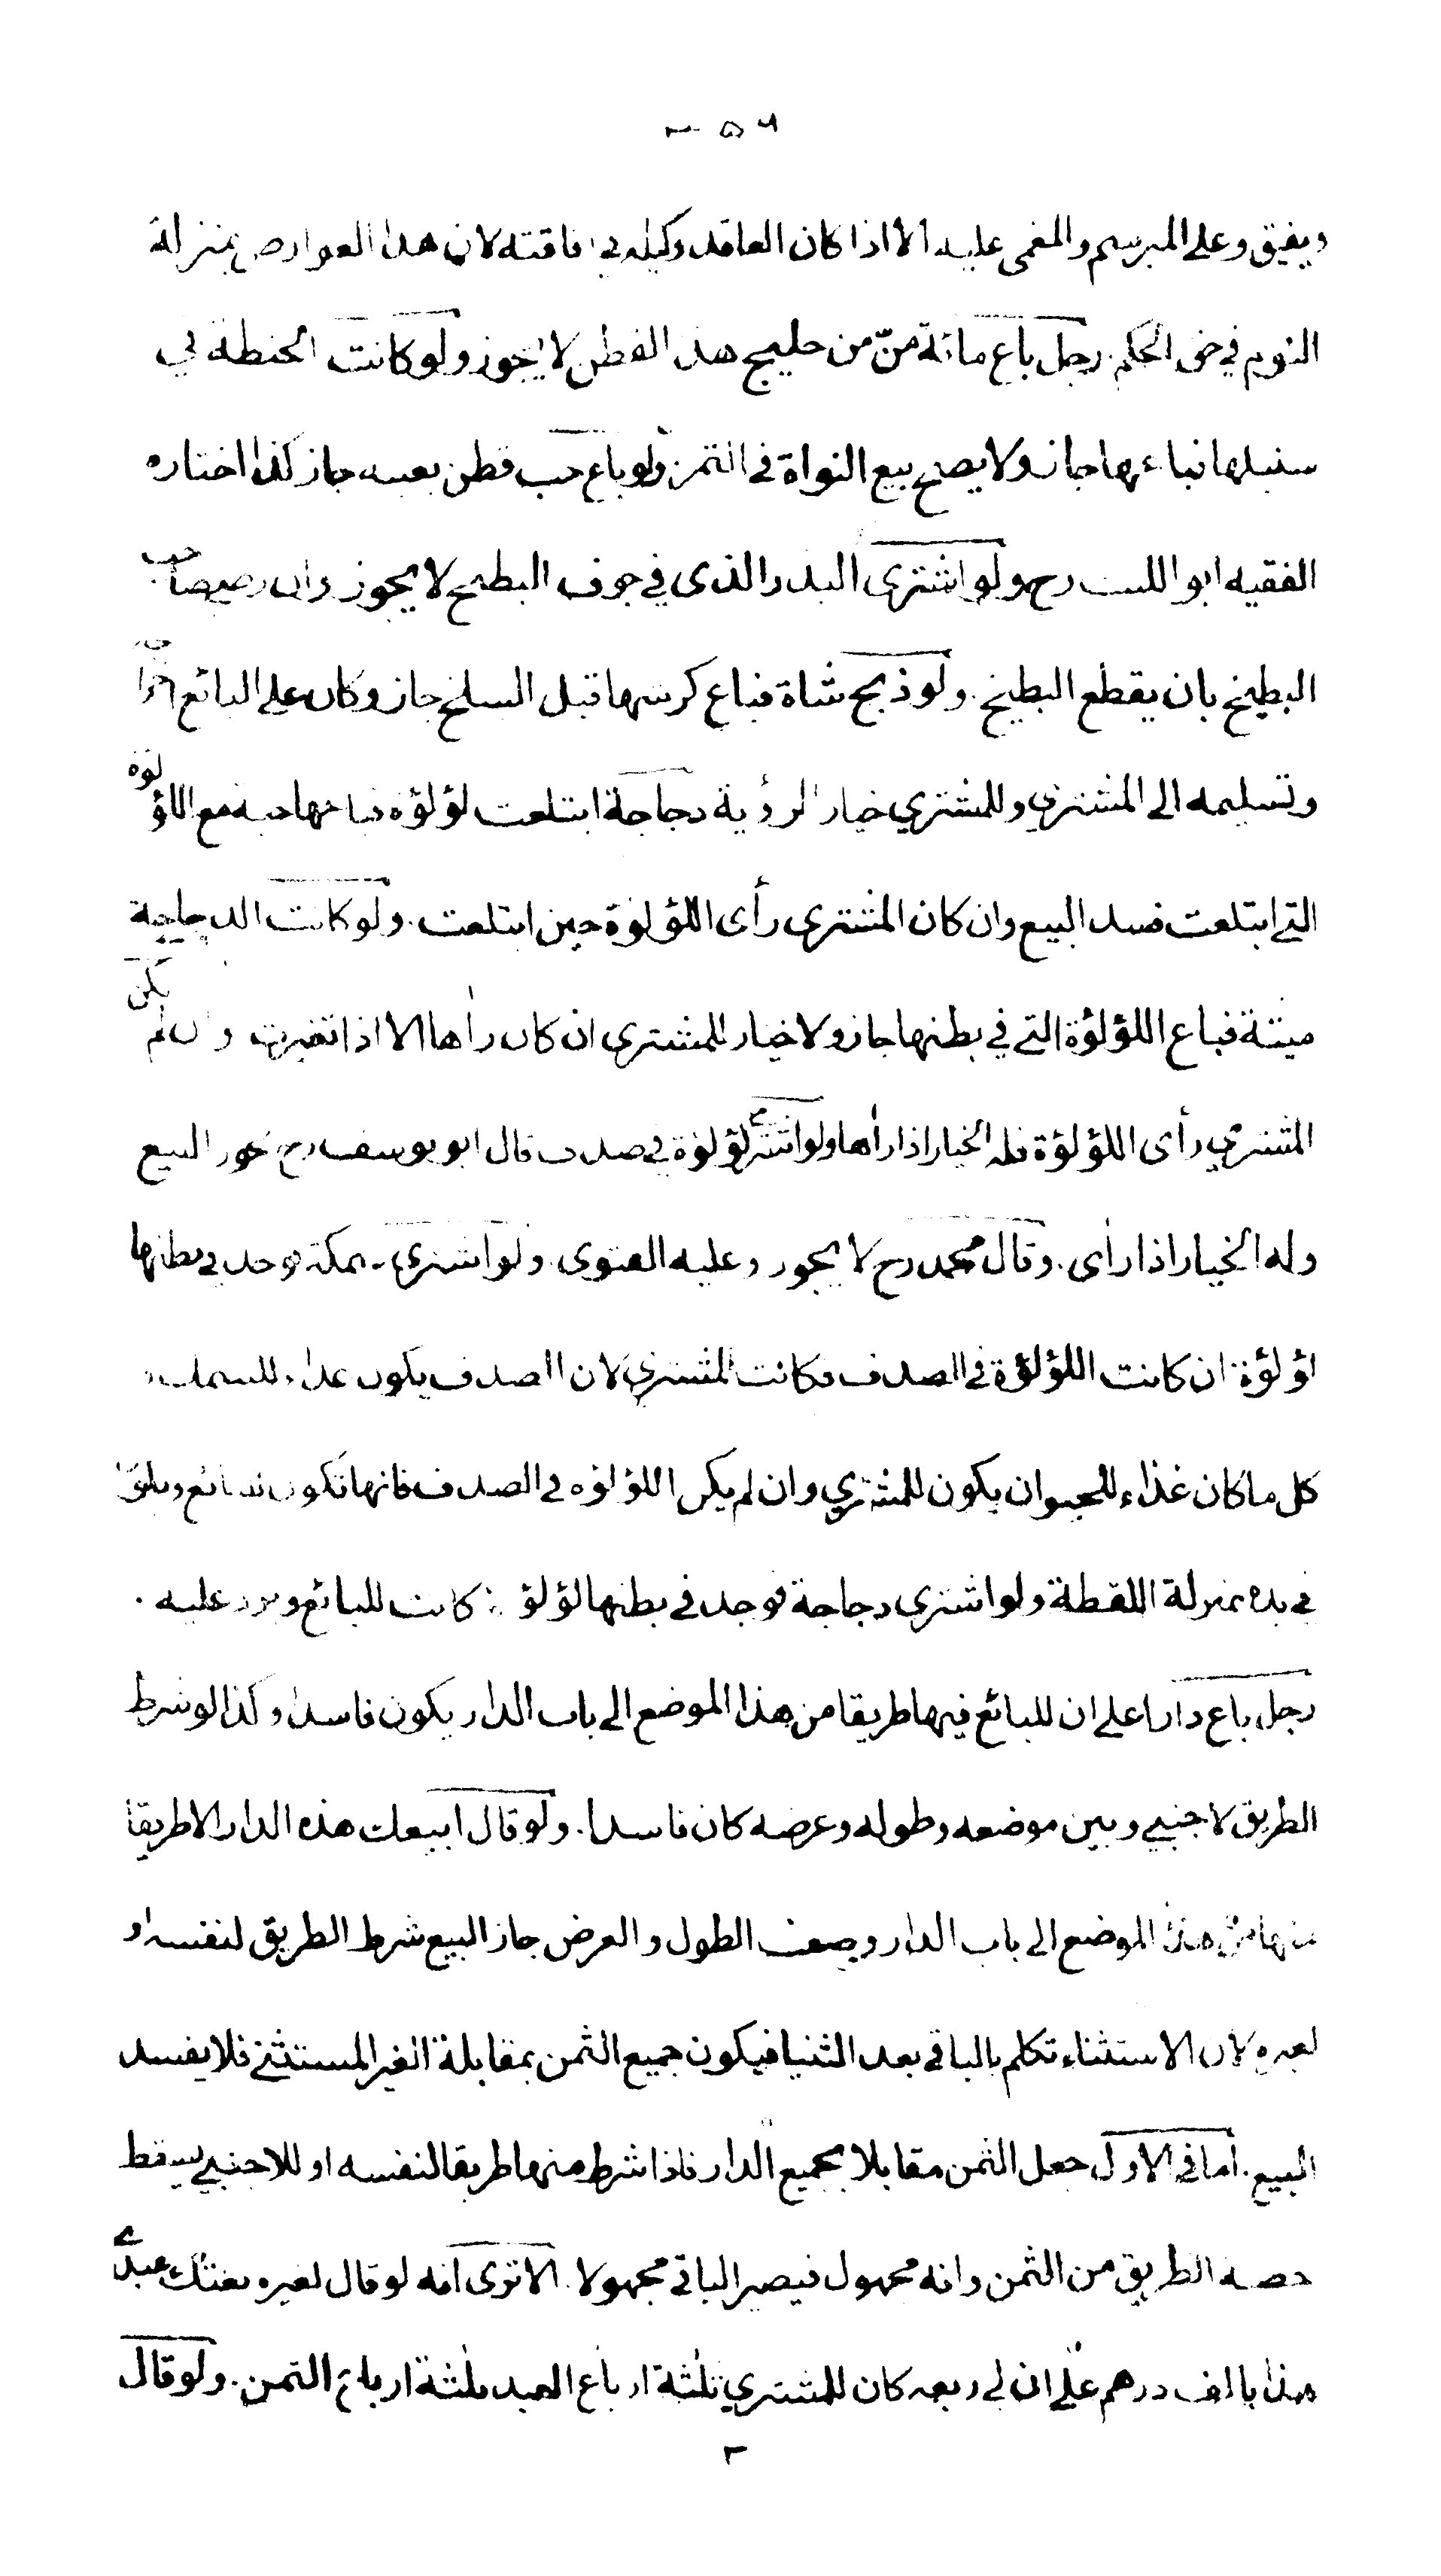 ٢٥٦
ويفيق وعلى المبرسم والمغمى عليه الا اذا كان العاقد وكيله في افاقته لان هذا العوارض بمنزلة
النوم في حق الحكم. رجل باع مائة منّ من حليج هذا القطن لا يجوز ولو كانت الحنطة في
سنبلها فباعها جاز ولا يصح بيع النواة في التمر ولو باع حب قطن بعينه جاز كذا اختاره
الفقيه ابو الليث رح ولو اشترى البذر الذي في جوف البطيخ لا يجوز وان رضي صاحب
البطيخ بان يقطع البطيخ. ولو ذبح شاة فباع كرشها قبل السلخ جاز وكان على البائع اخراجه
وتسليمه الى المشتري وللمشتري خيار الرؤية دجاجة ابتلعت لؤلؤة فباعها حية مع اللؤلؤة
التي ابتلعت فسد البيع وان كان المشتري رأى اللؤلؤة حين ابتلعت. ولو كانت الدجاجة
ميتة فباع اللؤلؤة التي في بطنها جاز ولا خيار للمشتري ان كان رأها الا اذا تغيرت وان لم يكن
المشتري رأى اللؤلؤة فله الخيار اذا رأها ولو اشترى لؤلؤة في صدف قال ابو يوسف رح يجوز البيع
وله الخيار اذا رأى. وقال محمد رح لا يجوز وعليه الفتوى. ولو اشترى سمكة فوجد في بطنها
لؤلؤة ان كانت اللؤلؤة في الصدف فكانت للمشتري لان الصدف يكون غذاء للسمك و
كل ما كان غذاء للحيوان يكون للمشتري وان لم يكن اللؤلؤة في الصدف فانها تكون للبائع وتكون
في يده بمنزلة اللقطة ولو اشترى دجاجة فوجد في بطنها لؤلؤة كانت للبائع ويرد عليه.
رجل باع دارا على ان للبائع فيها طريقا من هذا الموضع الى باب الدار يكون فاسدا وكذا لو شرط
الطريق لاجنبي وبين موضعه وطوله وعرضه كان فاسدا. ولو قال ابيعك هذه الدار الا طريقا
منها من هذا الموضع الى باب الدار ويصف الطول والعرض جاز البيع شرط الطريق لنفسه او
لغيره لان الاستثناء تكلم بالباقي بعد الثنيا فيكون جميع الثمن بمقابلة الغير المستثنى فلا يفسد
البيع. اما في الاول جعل الثمن مقابلا بجميع الدار فاذا شرط منها طريقا لنفسه او للاجنبي يسقط
حصة الطريق من الثمن وانه مجهول فيصير الباقي مجهولا. الا ترى انه لو قال لغيره بعتك عبدي
هذا بالف درهم على ان لي ربعه كان للمشتري ثلثة ارباع العبد بثلثة ارباع الثمن. ولو قال